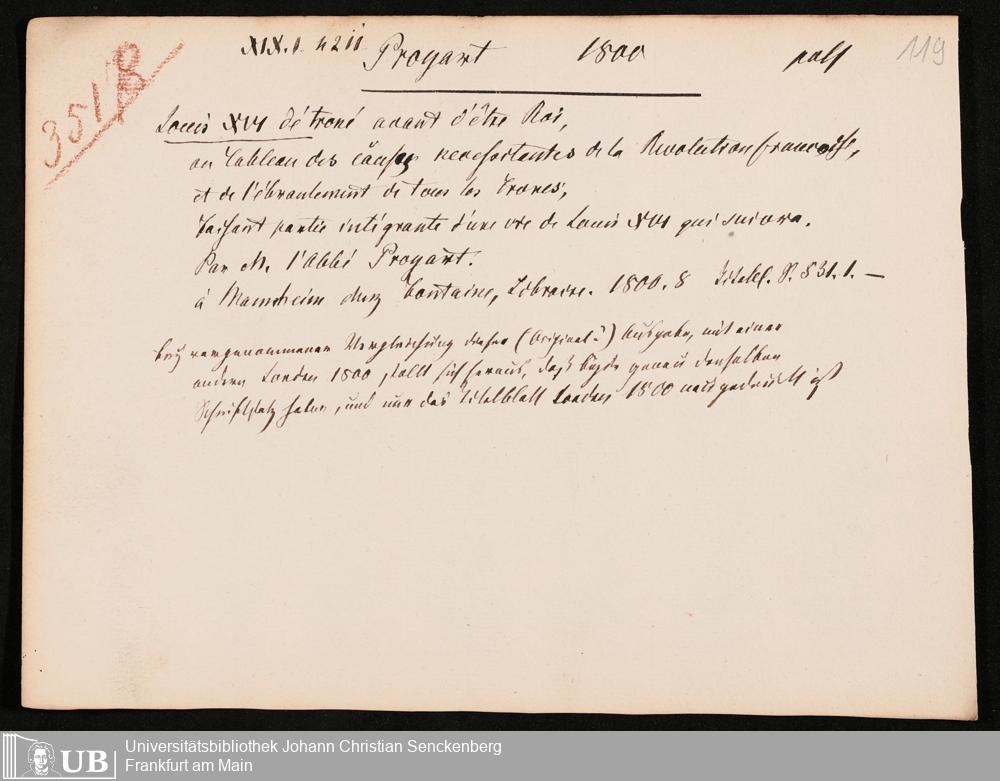 XIX.1 n211 Proyart 1800 119
3518
Louis XVI détroné avant d'être Roi,
ou Tableau des causes necessitantes de la Revolution francoise,
et de l'ébranlement de tous les Trones;
faisant partie intégrante d'une vie de Louis XVI qui suivra.
Par M. l'Abbé Proyart.
à Mannheim chez Fontaine, Libraire. 1800. 8 Titelbl. S. 531. 1. —
bey vorgenommener Vergleichung dieser (Original?) Ausgabe, mit einer
andern London 1800, stellt sich heraus, dass beyde genau denselben
Schriftsatz haben, und nur das Titelblatt London 1800 neu gedruckt ist
UB
Universitätsbibliothek Johann Christian Senckenberg
Frankfurt am Main